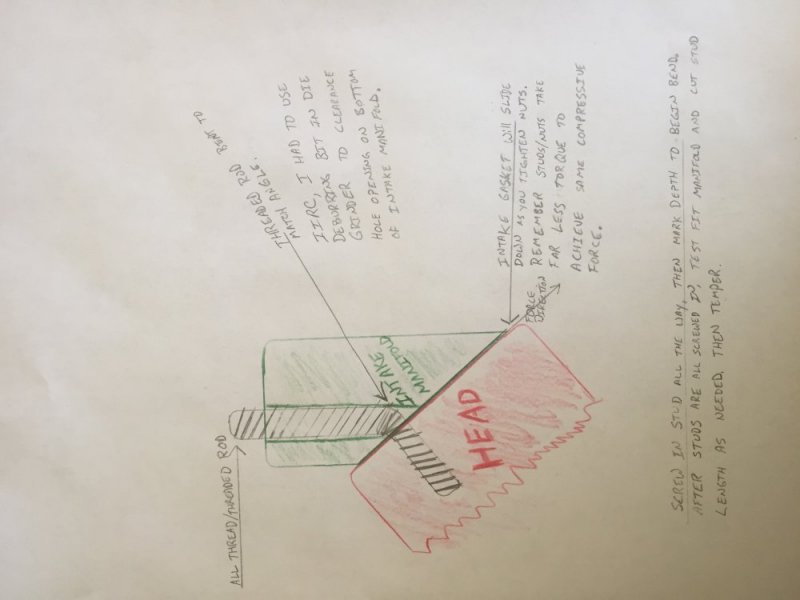 ALL THREAD/THREADED ROD
THREADED ROD BENT TO
MATCH ANGLE.
IIRC, I HAD TO USE
DEBURRING BIT IN DIE
GRINDER TO CLEARANCE
HOLE OPENING ON BOTTOM
OF INTAKE MANIFOLD.
INTAKE
MANIFOLD
HEAD
FORCE
DIRECTION
INTAKE GASKET WILL SLIDE
DOWN AS YOU TIGHTEN NUTS.
REMEMBER STUDS/NUTS TAKE
FAR LESS TORQUE TO
ACHIEVE SAME COMPRESSIVE
FORCE.
SCREW IN STUD ALL THE WAY, THEN MARK DEPTH TO BEGIN BEND.
AFTER STUDS ARE ALL SCREWED IN, TEST FIT MANIFOLD AND CUT STUD
LENGTH AS NEEDED, THEN TEMPER.